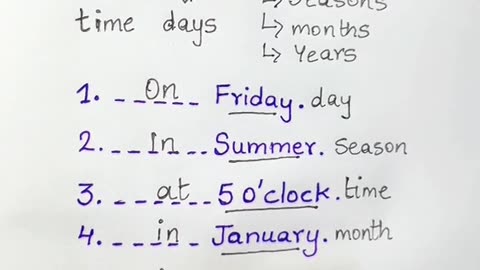 ↳ Seasons
time days ↳ months
↳ Years
1. _ _ On _ _ Friday. day
2. _ _ In _ _ Summer. Season
3. _ _ at _ _ 5 o'clock. time
4. _ _ in _ _ January. month